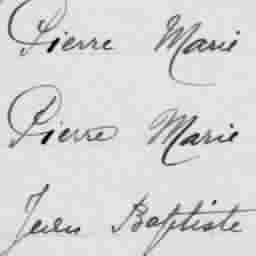 Pierre Marie
Pierre Marie
Jean Baptiste